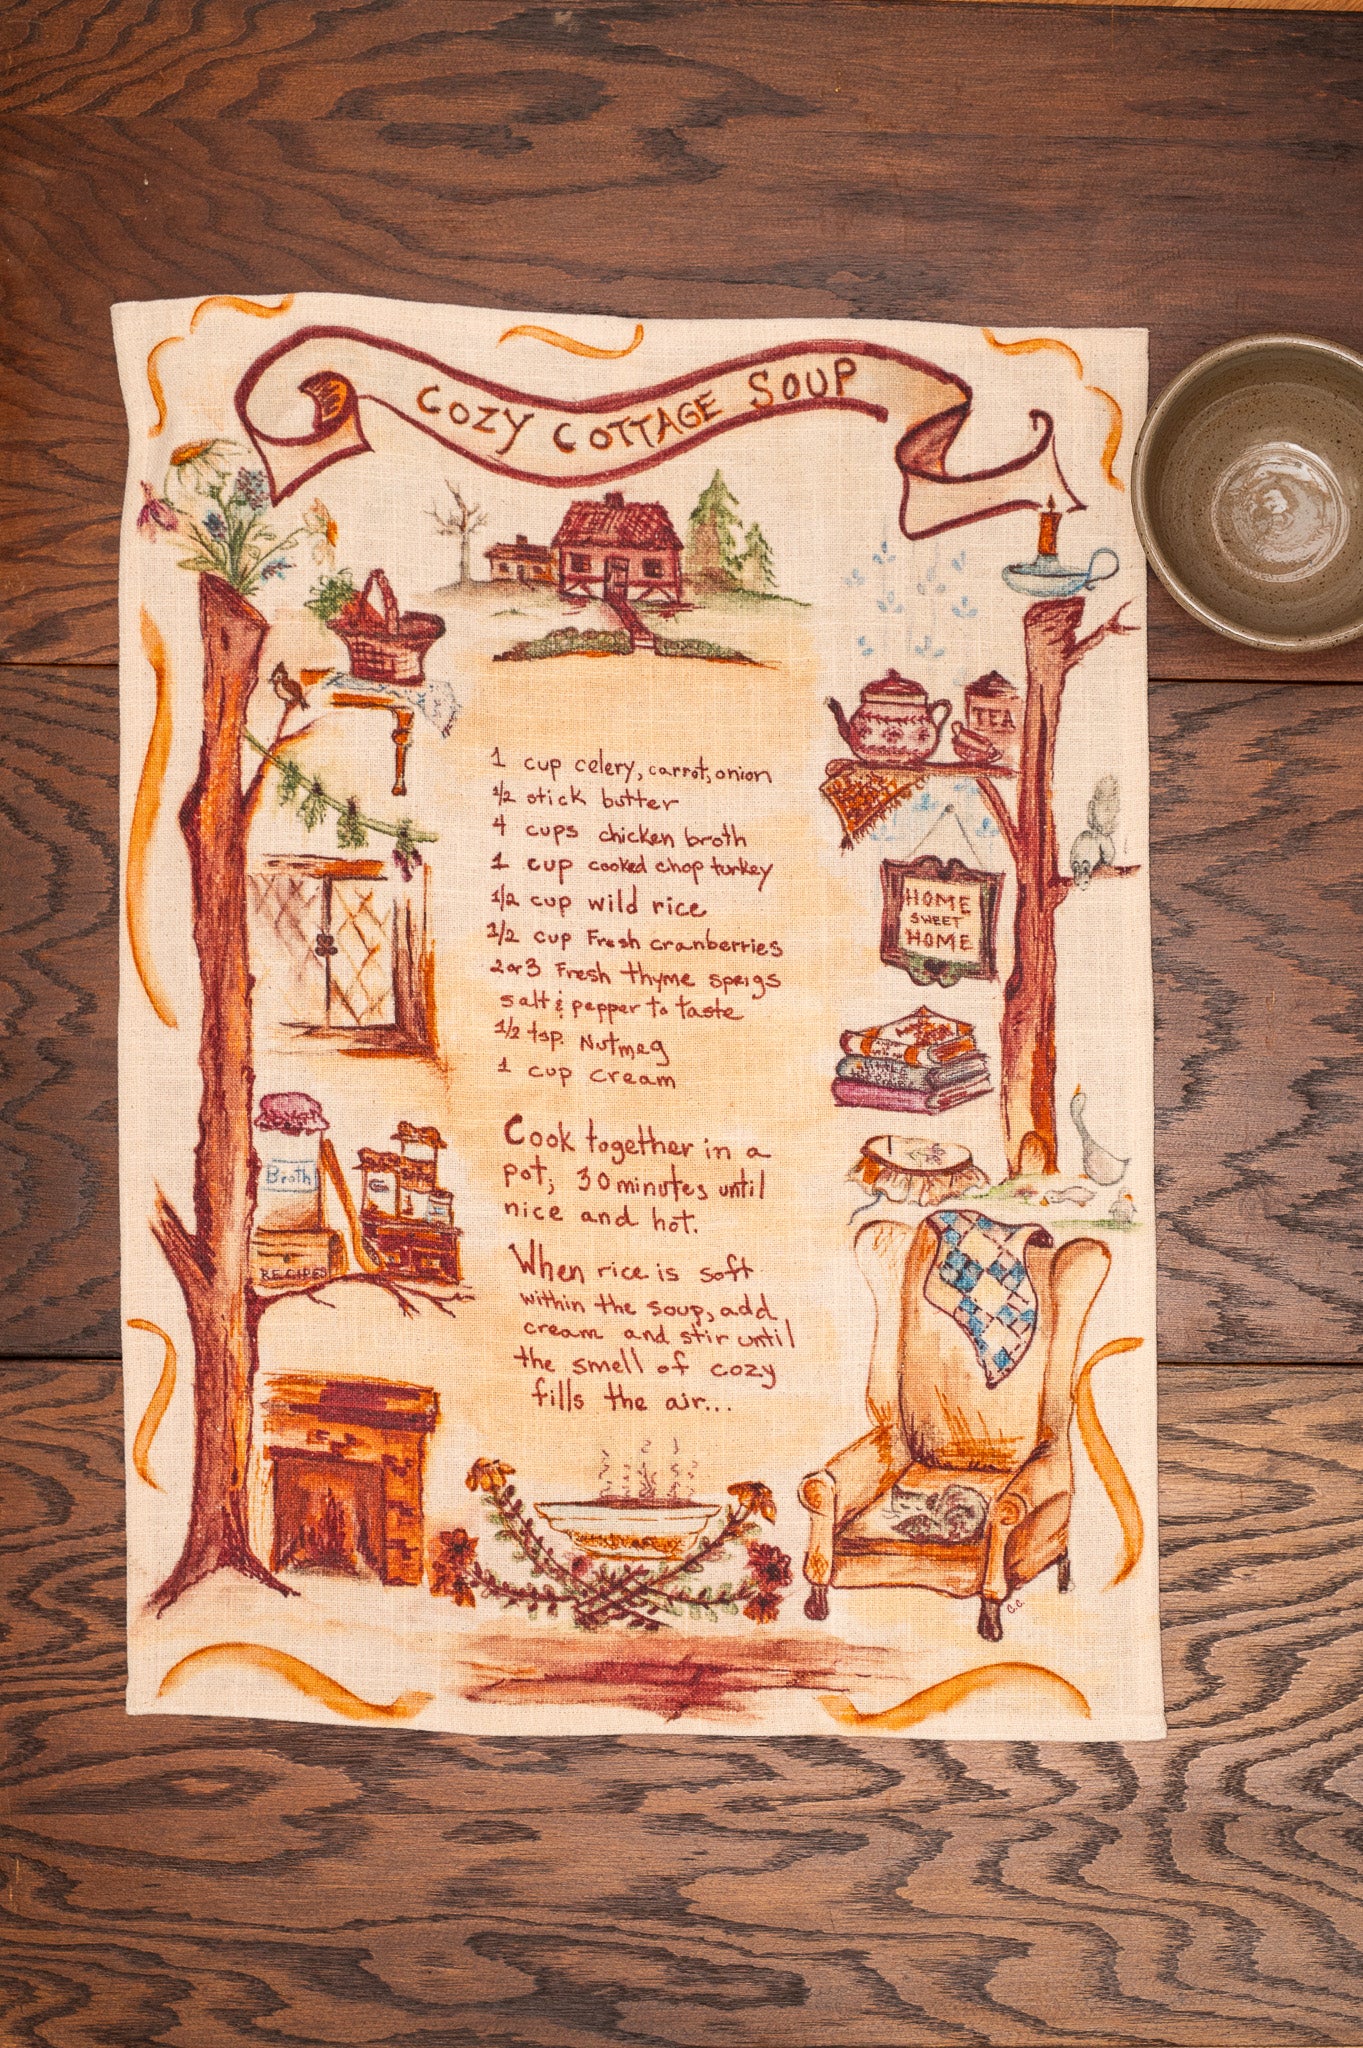 COZY COTTAGE SOUP
TEA
1 cup celery, carrot, onion
1/2 stick butter
4 cups chicken broth
1 cup cooked chop turkey
1/2 cup wild rice
1/2 cup Fresh cranberries
2 or 3 Fresh thyme sprigs
salt & pepper to taste
1/2 tsp. Nutmeg
1 cup cream
HOME
SWEET
HOME
Broth
RECIPES
Cook together in a
pot; 30 minutes until
nice and hot.
When rice is soft
within the soup, add
cream and stir until
the smell of cozy
fills the air...
C.C.